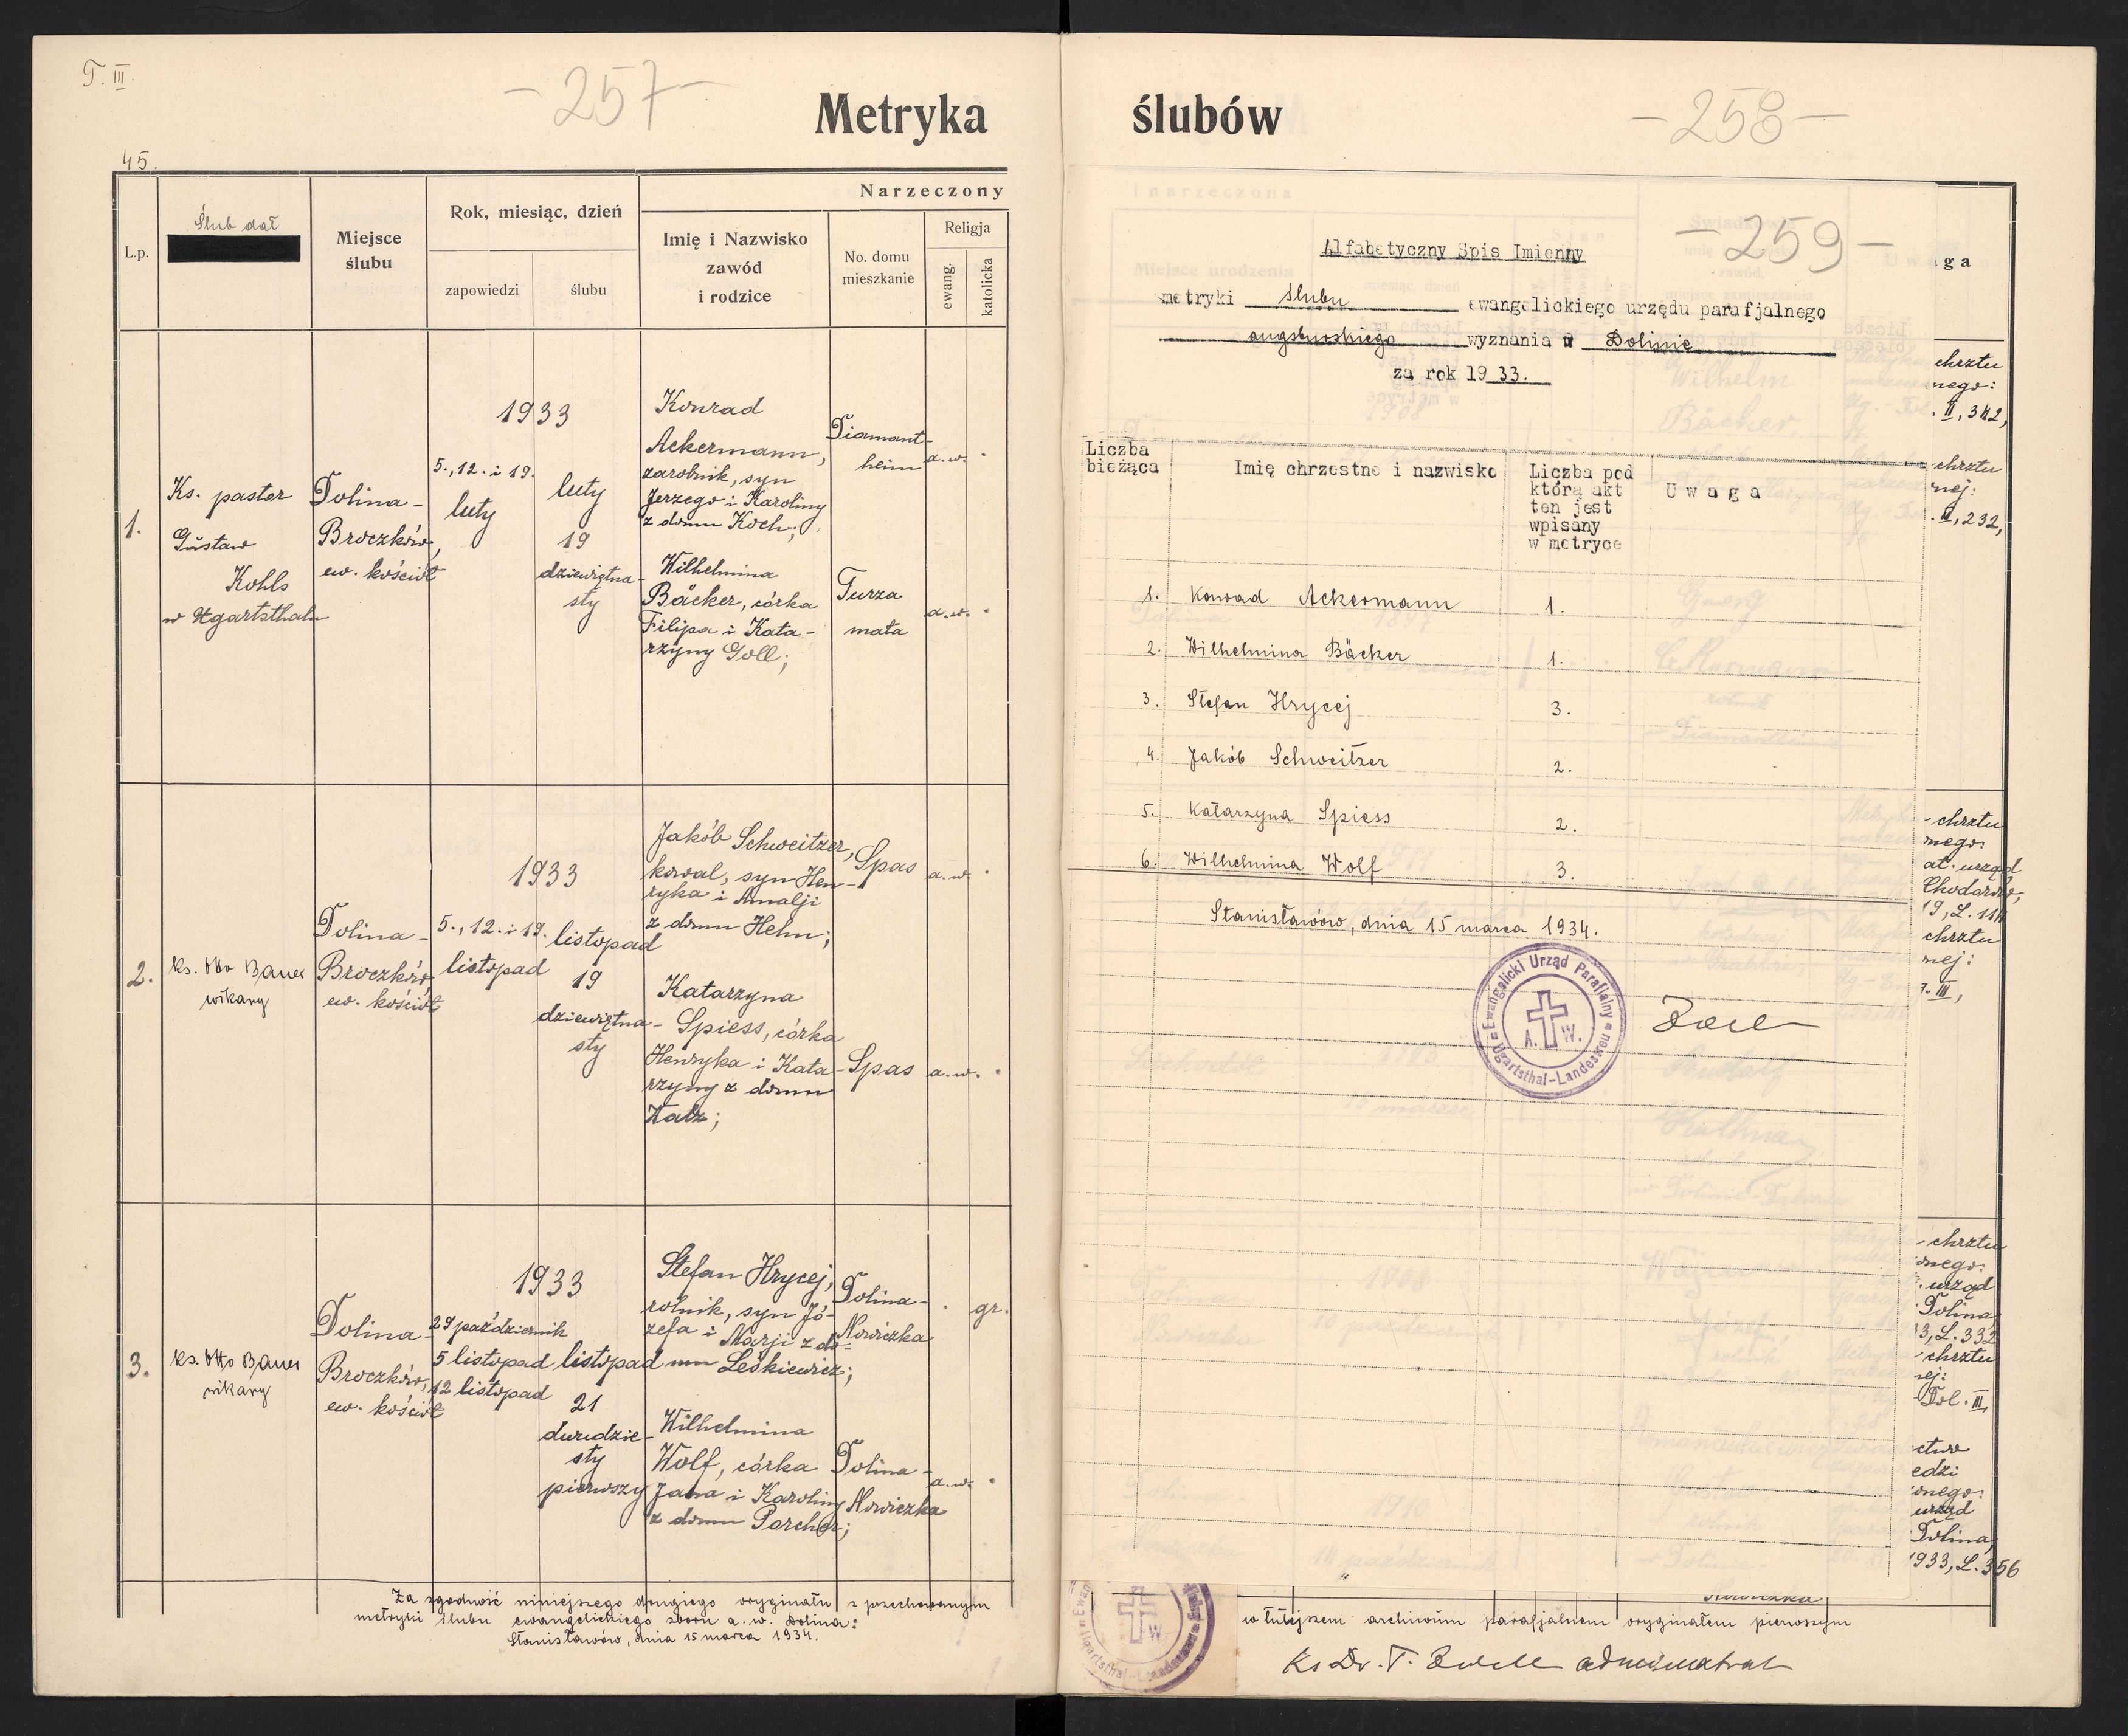 T. III.
- 257 -
Metryka
45.
L.p.
Ślub dał
Miejsce
ślubu
Rok, miesiąc, dzień
zapowiedzi
ślubu
Narzeczony
Imię i Nazwisko
zawód
i rodzice
No. domu
mieszkanie
Religja
ewang.
katolicka
1.
Ks. pastor
Gustaw
Kohls
w Ugartsthalu
Dolina-
Broczków,
ew. kościół
1933
5., 12. i 19.
luty
luty
19
dziewiętna-
sty
Konrad
Ackermann,
zarobnik, syn
Jerzego i Karoliny
z domu Koch;
Diamant-
heim
a.w.
Wilhelmina
Bäcker, córka
Filipa i Kata-
rzyny Goll;
Turza
mała
a.w.
2.
Ks. Otto Bauer
wikary
Dolina-
Broczków,
ew. kościół
1933
5., 12. i 19.
listopad
listopad
19
dziewiętna-
sty
Jakób Schweitzer,
kowal, syn Hen-
ryka i Amalji
z domu Hehn;
Spas
a.w.
Katarzyna
Spiess, córka
Henryka i Kata-
rzyny z domu
Katz;
Spas
a.w.
3.
Ks. Otto Bauer
wikary
Dolina-
Broczków,
ew. kościół
1933
29 październik
5 listopad
12 listopad
listopad
21
dwudzie-
sty
pierwszy
Stefan Hrycej,
rolnik, syn Jó-
zefa i Marji z do-
mu Leśkiewicz;
Dolina-
Nowiczka
gr.
Wilhelmina
Wolf, córka
Jana i Karoliny
z domu Porcher;
Dolina-
Nowiczka
a.w.
Za zgodność niniejszego drugiego oryginału z przechowanym
metryki ślubu ewangelickiego zboru a. w. Dolina:
Stanisławów, dnia 15 marca 1934.
ślubów
- 258 -
- 259 -
Alfabetyczny Spis Imienny
metryki ślubu ewangelickiego urzędu parafjalnego
augsburskiego wyznania w Dolinie
za rok 1933.
Liczba
bieżąca
Imię chrzestne i nazwisko
Liczba pod
którą akt
ten jest
wpisany
w metryce
Uwaga
1. Konrad Ackermann 1.
2. Wilhelmina Bäcker 1.
3. Stefan Hrycej 3.
4. Jakób Schweitzer 2.
5. Katarzyna Spiess 2.
6. Wilhelmina Wolf 3.
Stanisławów, dnia 15 marca 1934.
Ewangelicki Urząd Parafjalny
A. W.
Ugartsthal-Landestreu
ga
chrztu
nego:
II, 342,
chrztu
nej:
II, 232,
chrztu
nego:
at. urząd
Chodorów,
19, L. 114
chrztu
nej:
T. III,
chrztu
onego:
urząd
Dolina,
33, L. 332
chrztu
nej:
Dol. III,
ctwo
edzi
onego:
urząd
Dolina,
1933, L. 356
Nowiczka
w tutejszem archiwum parafjalnem oryginałem pierwszym
Ks Dr. T. Zöckler administrator